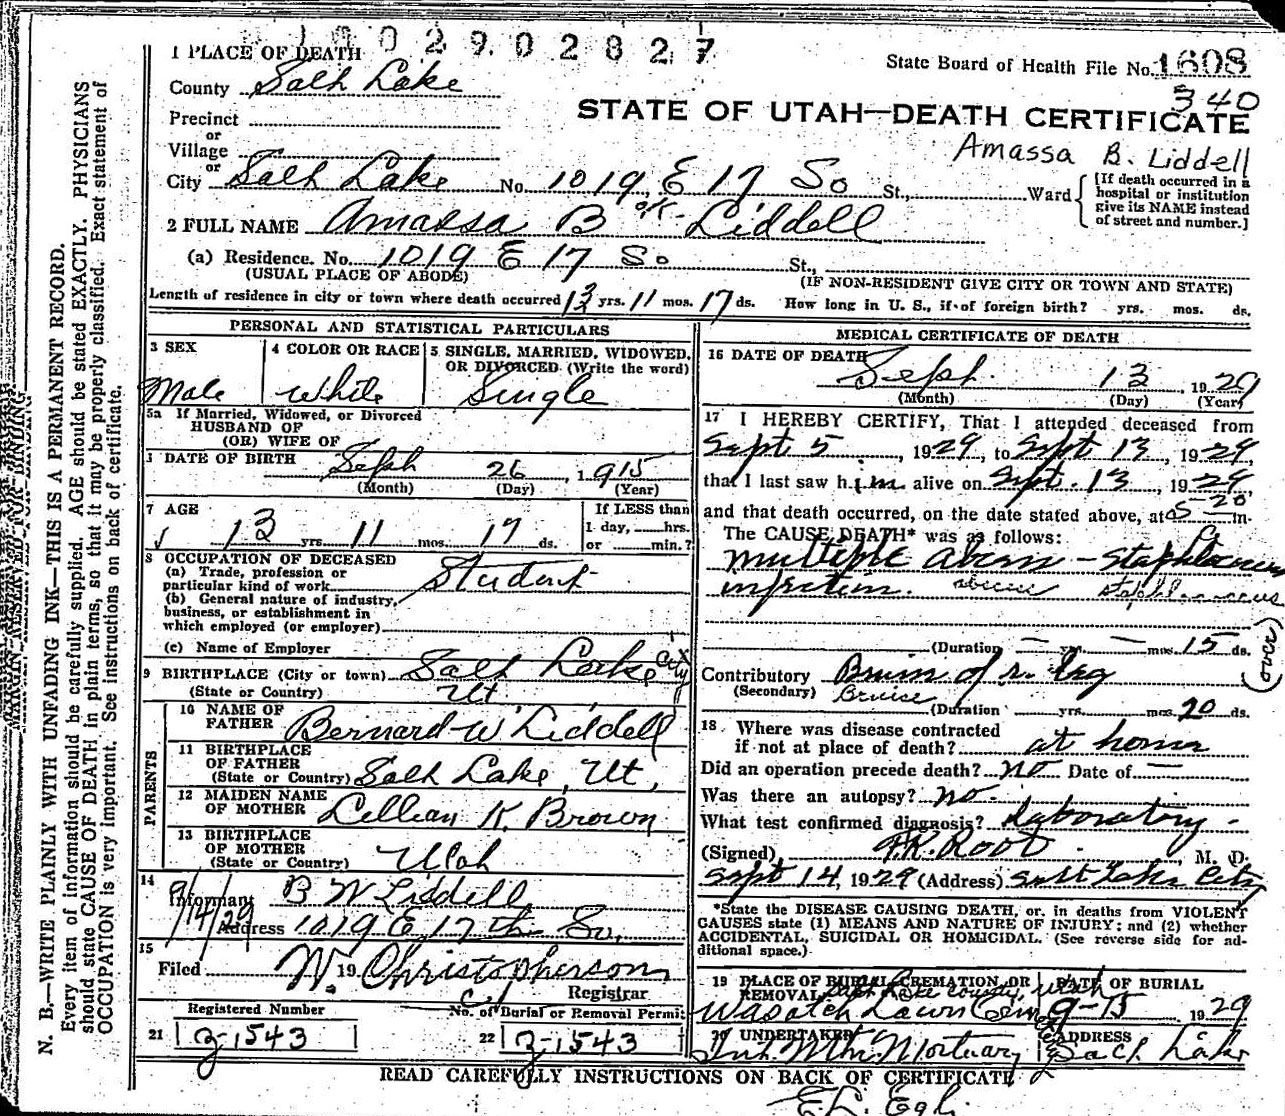 1 0 0 2 9 0 2 8 2 7
1 PLACE OF DEATH
State Board of Health File No. 1608
County Salt Lake
340
STATE OF UTAH—DEATH CERTIFICATE
Precinct
or
Village
Amassa B. Liddell
or
City Salt Lake No. 1019 E 17 So St., Ward
[If death occurred in a hospital or institution give its NAME instead of street and number.]
2 FULL NAME Amassa B Liddell
OK
(a) Residence. No. 1019 E 17 So St.,
(USUAL PLACE OF ABODE) (IF NON-RESIDENT GIVE CITY OR TOWN AND STATE)
Length of residence in city or town where death occurred 13 yrs. 11 mos. 17 ds. How long in U. S., if of foreign birth? yrs. mos. ds.
PERSONAL AND STATISTICAL PARTICULARS
3 SEX
Male
4 COLOR OR RACE
White
5 SINGLE, MARRIED, WIDOWED, OR DIVORCED (Write the word)
Single
5a If Married, Widowed, or Divorced
HUSBAND OF
(OR) WIFE OF
DATE OF BIRTH Sept 26, 1915
(Month) (Day) (Year)
7 AGE
13 yrs. 11 mos. 17 ds.
If LESS than
1 day, hrs.
or min.?
8 OCCUPATION OF DECEASED
(a) Trade, profession or
particular kind of work Student
(b) General nature of industry,
business, or establishment in
which employed (or employer)
(c) Name of Employer
9 BIRTHPLACE (City or town) Salt Lake City
(State or Country) Ut
PARENTS
10 NAME OF
FATHER Bernard W Liddell
11 BIRTHPLACE
OF FATHER
(State or Country) Salt Lake, Ut,
12 MAIDEN NAME
OF MOTHER Lillian K. Brown
13 BIRTHPLACE
OF MOTHER
(State or Country) Utah
14
Informant B W Liddell
9/14/29
Address 1019 E 17th So,
15
Filed W. 19 Christopherson
Registrar
Registered Number
21 3-1543
No. of Burial or Removal Permit
22 3-1543
MEDICAL CERTIFICATE OF DEATH
16 DATE OF DEATH
Sept. 13 1929
(Month) (Day) (Year)
17 I HEREBY CERTIFY, That I attended deceased from
Sept 5, 1929, to Sept 13, 1929,
that I last saw him alive on Sept. 13, 1929,
and that death occurred, on the date stated above, at 5-20 m.
The CAUSE DEATH* was as follows:
multiple
infection.
(Duration — yrs. — mos. 15 ds.
(over)
Contributory of r. leg
(Secondary) Bruise
(Duration yrs. mos. 20 ds.
18 Where was disease contracted
if not at place of death? at home
Did an operation precede death? no Date of —
Was there an autopsy? no.
What test confirmed diagnosis? Laboratory -
(Signed) F.K. Root, M. D.
Sept 14, 1929 (Address) Salt Lake City
*State the DISEASE CAUSING DEATH, or, in deaths from VIOLENT
CAUSES state (1) MEANS AND NATURE OF INJURY; and (2) whether
ACCIDENTAL, SUICIDAL OR HOMICIDAL. (See reverse side for ad-
ditional space.)
19 PLACE OF BURIAL, CREMATION, OR
REMOVAL Salt Lake County, Utah
Wasatch Lawn Cem
DATE OF BURIAL
9-15 1929
20 UNDERTAKER
Mortuary
ADDRESS
Salt Lake
READ CAREFULLY INSTRUCTIONS ON BACK OF CERTIFICATE
E. L. Egli
N. B.—WRITE PLAINLY WITH UNFADING INK—THIS IS A PERMANENT RECORD.
Every item of information should be carefully supplied. AGE should be stated EXACTLY. PHYSICIANS
should state CAUSE OF DEATH in plain terms, so that it may be properly classified. Exact statement of
OCCUPATION is very important. See instructions on back of certificate.
MARGIN RESERVED FOR BINDING